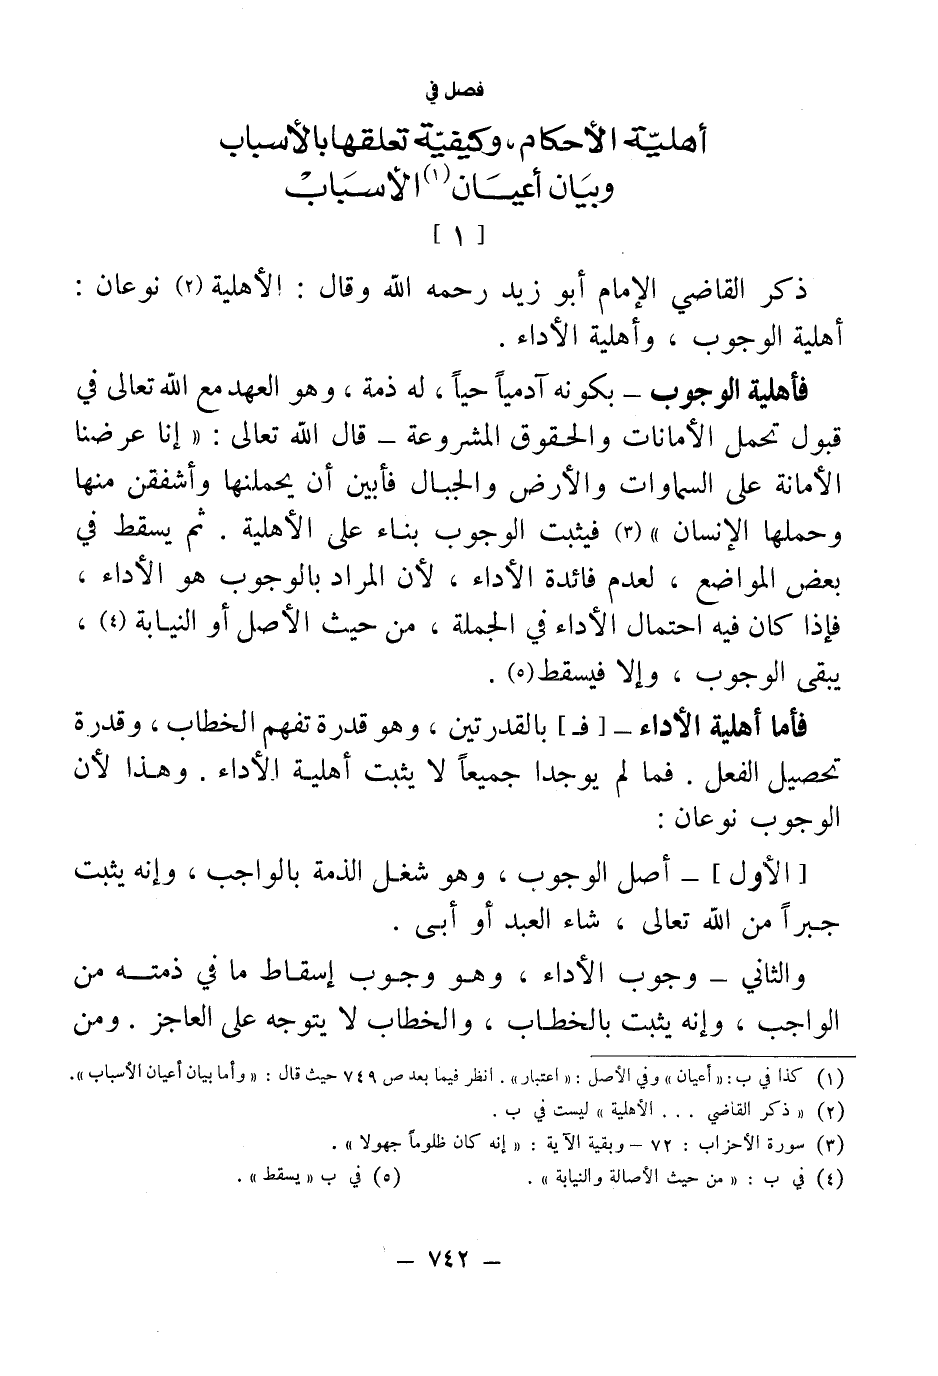 فصل في
أهليّة الأحكام، وكيفيّة تعلقها بالأسباب
وبيَان أعيَان(١) الأسبَابْ
[ ١ ]
ذكر القاضي الإمام أبو زيد رحمه الله وقال : الأهلية (٢) نوعان :
أهلية الوجوب ، وأهلية الأداء .
فأهلية الوجوب – بكونه آدمياً حياً ، له ذمة ، وهو العهد مع الله تعالى في
قبول تحمل الأمانات والحقوق المشروعة – قال الله تعالى : « إنا عرضنا
الأمانة على السماوات والأرض والجبال فأبين أن يحملنها وأشفقن منها
وحملها الإنسان » (٣) فيثبت الوجوب بناء على الأهلية . ثم يسقط في
بعض المواضع ، لعدم فائدة الأداء ، لأن المراد بالوجوب هو الأداء ،
فإذا كان فيه احتمال الأداء في الجملة ، من حيث الأصل أو النيابة (٤) ،
يبقى الوجوب ، وإلا فيسقط (٥) .
فأما أهلية الأداء – [ فـ ] بالقدرتين ، وهو قدرة تفهم الخطاب ، وقدرة
تحصيل الفعل . فما لم يوجدا جميعاً لا يثبت أهلية الأداء . وهذا لأن
الوجوب نوعان :
[ الأول ] – أصل الوجوب ، وهو شغل الذمة بالواجب ، وإنه يثبت
جبراً من الله تعالى ، شاء العبد أو أبى .
والثاني – وجوب الأداء ، وهو وجوب إسقاط ما في ذمته من
الواجب ، وإنه يثبت بالخطاب ، والخطاب لا يتوجه على العاجز . ومن
(١) كذا في ب : « أعيان » وفي الأصل : « اعتبار » . انظر فيما بعد ص ٧٤٩ حيث قال : « وأما بيان أعيان الأسباب » .
(٢) « ذكر القاضي ... الأهلية » ليست في ب .
(٣) سورة الأحزاب : ٧٢ – وبقية الآية : « إنه كان ظلوماً جهولا » .
(٤) في ب : « من حيث الأصالة والنيابة » . (٥) في ب « يسقط » .
– ٧٤٢ –